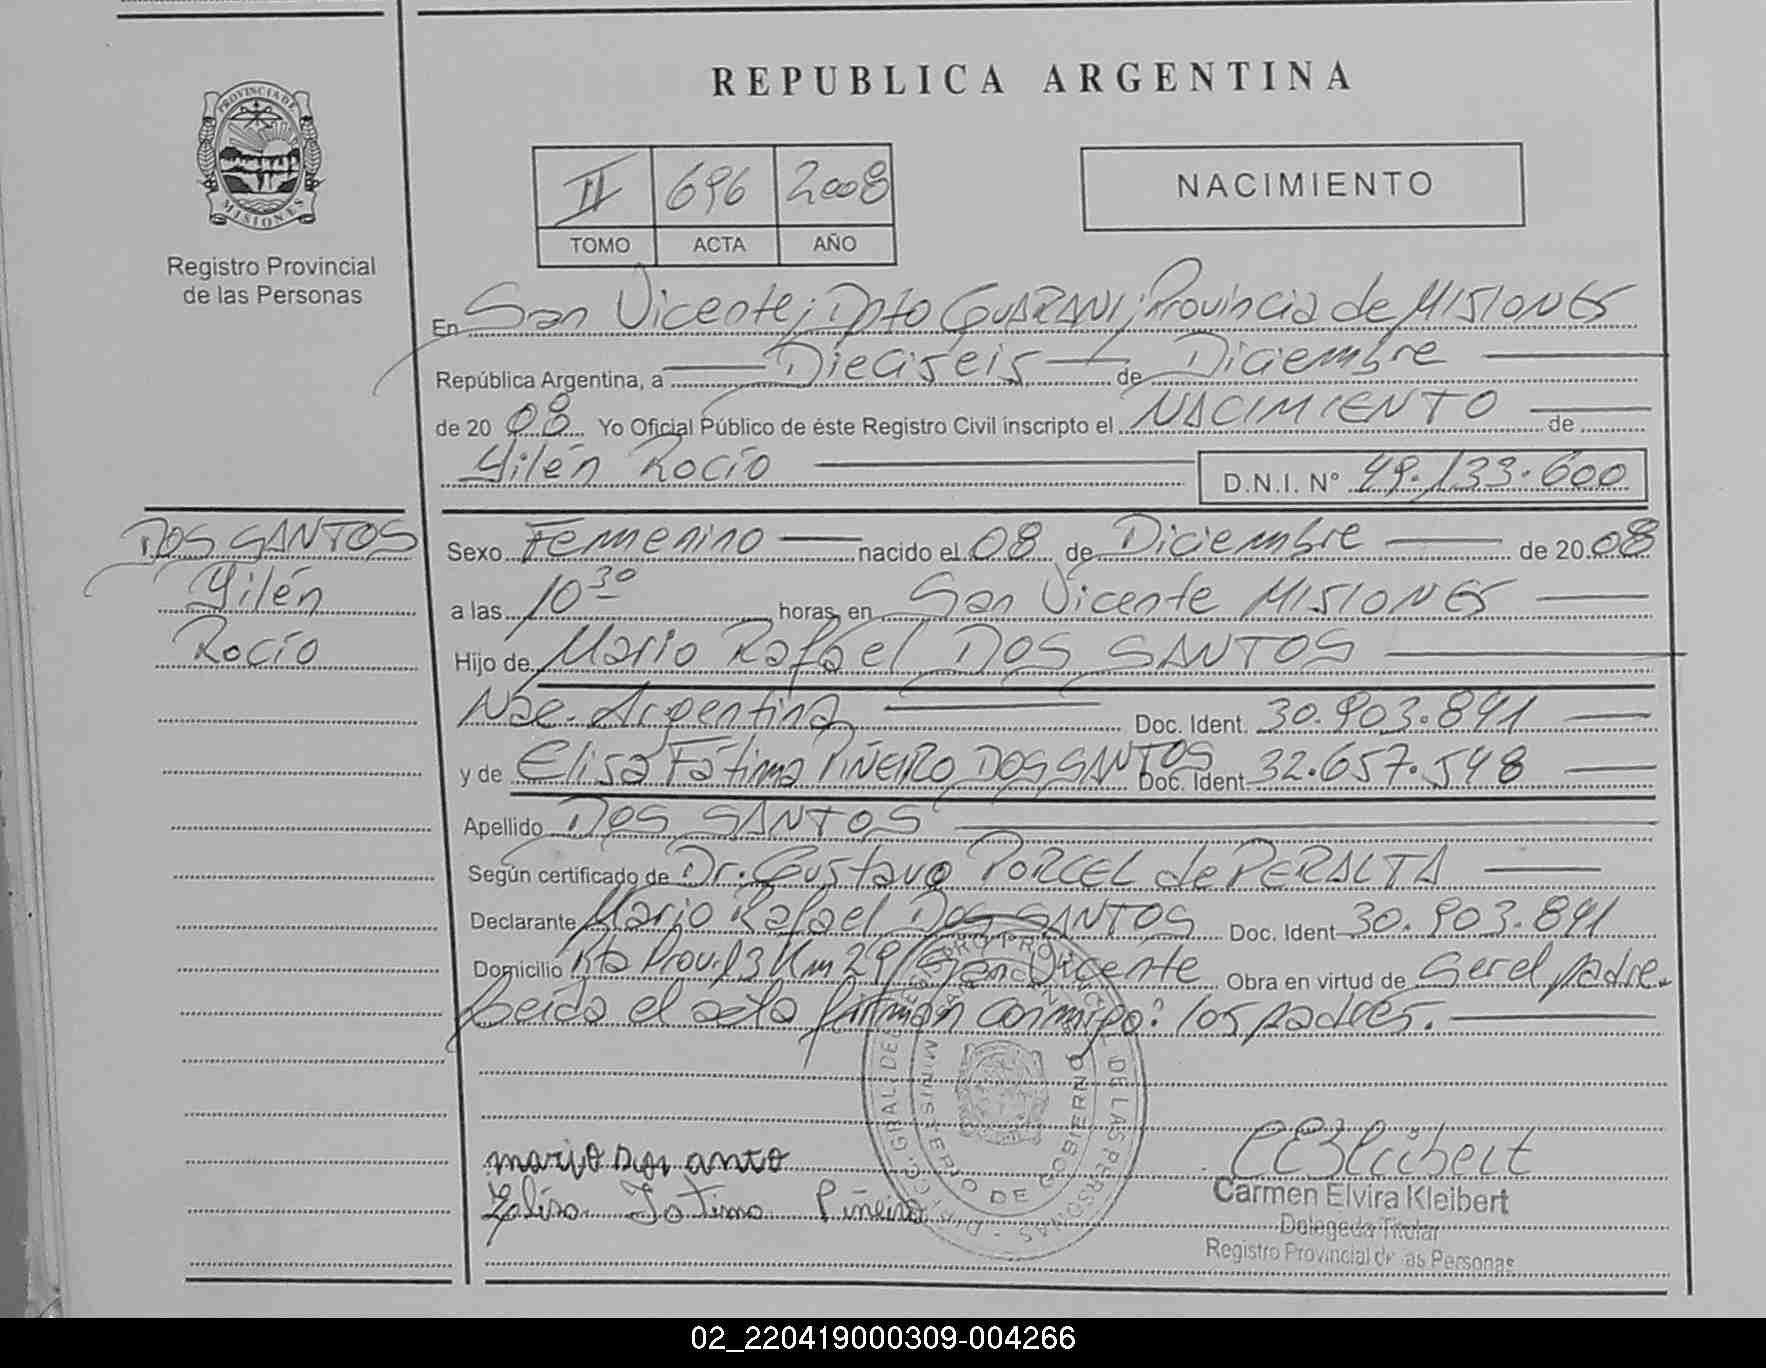 REPUBLICA ARGENTINA
PROVINCIA DE
MISIONES
Registro Provincial
de las Personas
II 696 2008
TOMO ACTA AÑO
NACIMIENTO
En San Vicente, Dpto GUARANI, Provincia de MISIONES
República Argentina, a Dieciseis de Diciembre
de 20 08 Yo Oficial Público de éste Registro Civil inscripto el NACIMIENTO de
Yilén Rocío D.N.I. N° 49.133.600
DOS SANTOS
Yilén
Rocío
Sexo Femenino nacido el 08 de Diciembre de 20 08
a las 10 30 horas, en San Vicente MISIONES
Hijo de Mario Rafael DOS SANTOS
Nac. Argentina Doc. Ident. 30.903.891
y de Elisa Fátima PIÑEIRO DOS SANTOS Doc. Ident. 32.657.548
Apellido DOS SANTOS
Según certificado de Dr. Gustavo PORCEL de PERALTA
Declarante Mario Rafael DOS SANTOS Doc. Ident 30.903.891
Domicilio Rta Prov. 13 Km 29 San Vicente Obra en virtud de ser el padre.
Leida el acta firman conmigo: los padres.
mario dos anto
Elisa Fatima Piñeiro
REGISTRO PROVINCIAL DE LAS PERSONAS
MINISTERIO DE GOBIERNO
Carmen Elvira Kleibert
Delegada Titular
Registro Provincial de las Personas
02_220419000309-004266